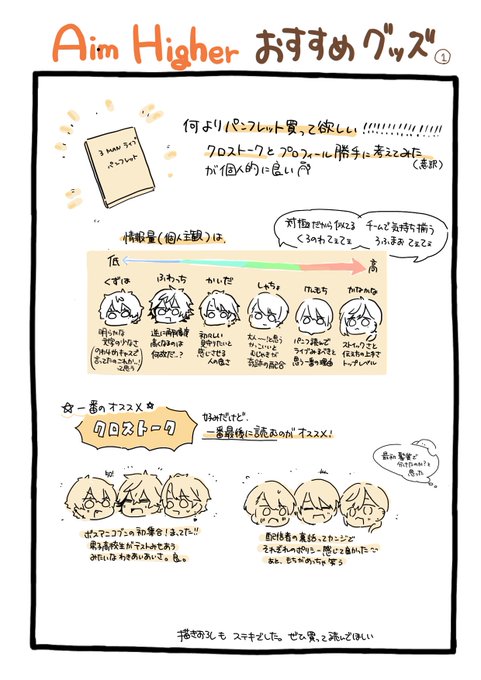 Aim Higher おすすめグッズ ①
3 MAN ライブ
パンフレット
何よりパンフレット買って欲しい!!!!!!!!!!!!!
クロストークとプロフィール勝手に考えてみた
(意訳)
が個人的に良い
対極だから似てる
くろのわてぇてぇ
チームで気持ち揃う
ろふまおてぇてぇ
情報量(個人主観)は、
低
高
くずは
ふわっち
かいだ
しゃちょ
けんもち
かなかな
明らかな
文字の少なさ
(のわゆめキャスで
言ってたのこれかー!
って思う)
逆に解像度
高くなるのは
何故だ…?
初々しい
見守りたいと
感じさせる
人の良さ
大人〜!と思う
かっこいいと
むじゃきが
奇跡の配合
パンフ読んで
ライブみるべきと
思う一番の理由
ストイックさと
伝え方の上手さ
トップレベル
☆一番のオススメ☆
クロストーク
好みだけど、
一番最後に読むのがオススメ!
最初、髪型で
分けたのか?と
思った
ボスマニコブンの初集合!まってた!!
男子高校生がテストみせあう
みたいなわきあいあいさ。良。
配信者の裏話ってカンジで
それぞれのポリシー感じて良かった
あと、もちがめっちゃ笑う
描きおろしも ステキでした。ぜひ買って読んでほしい